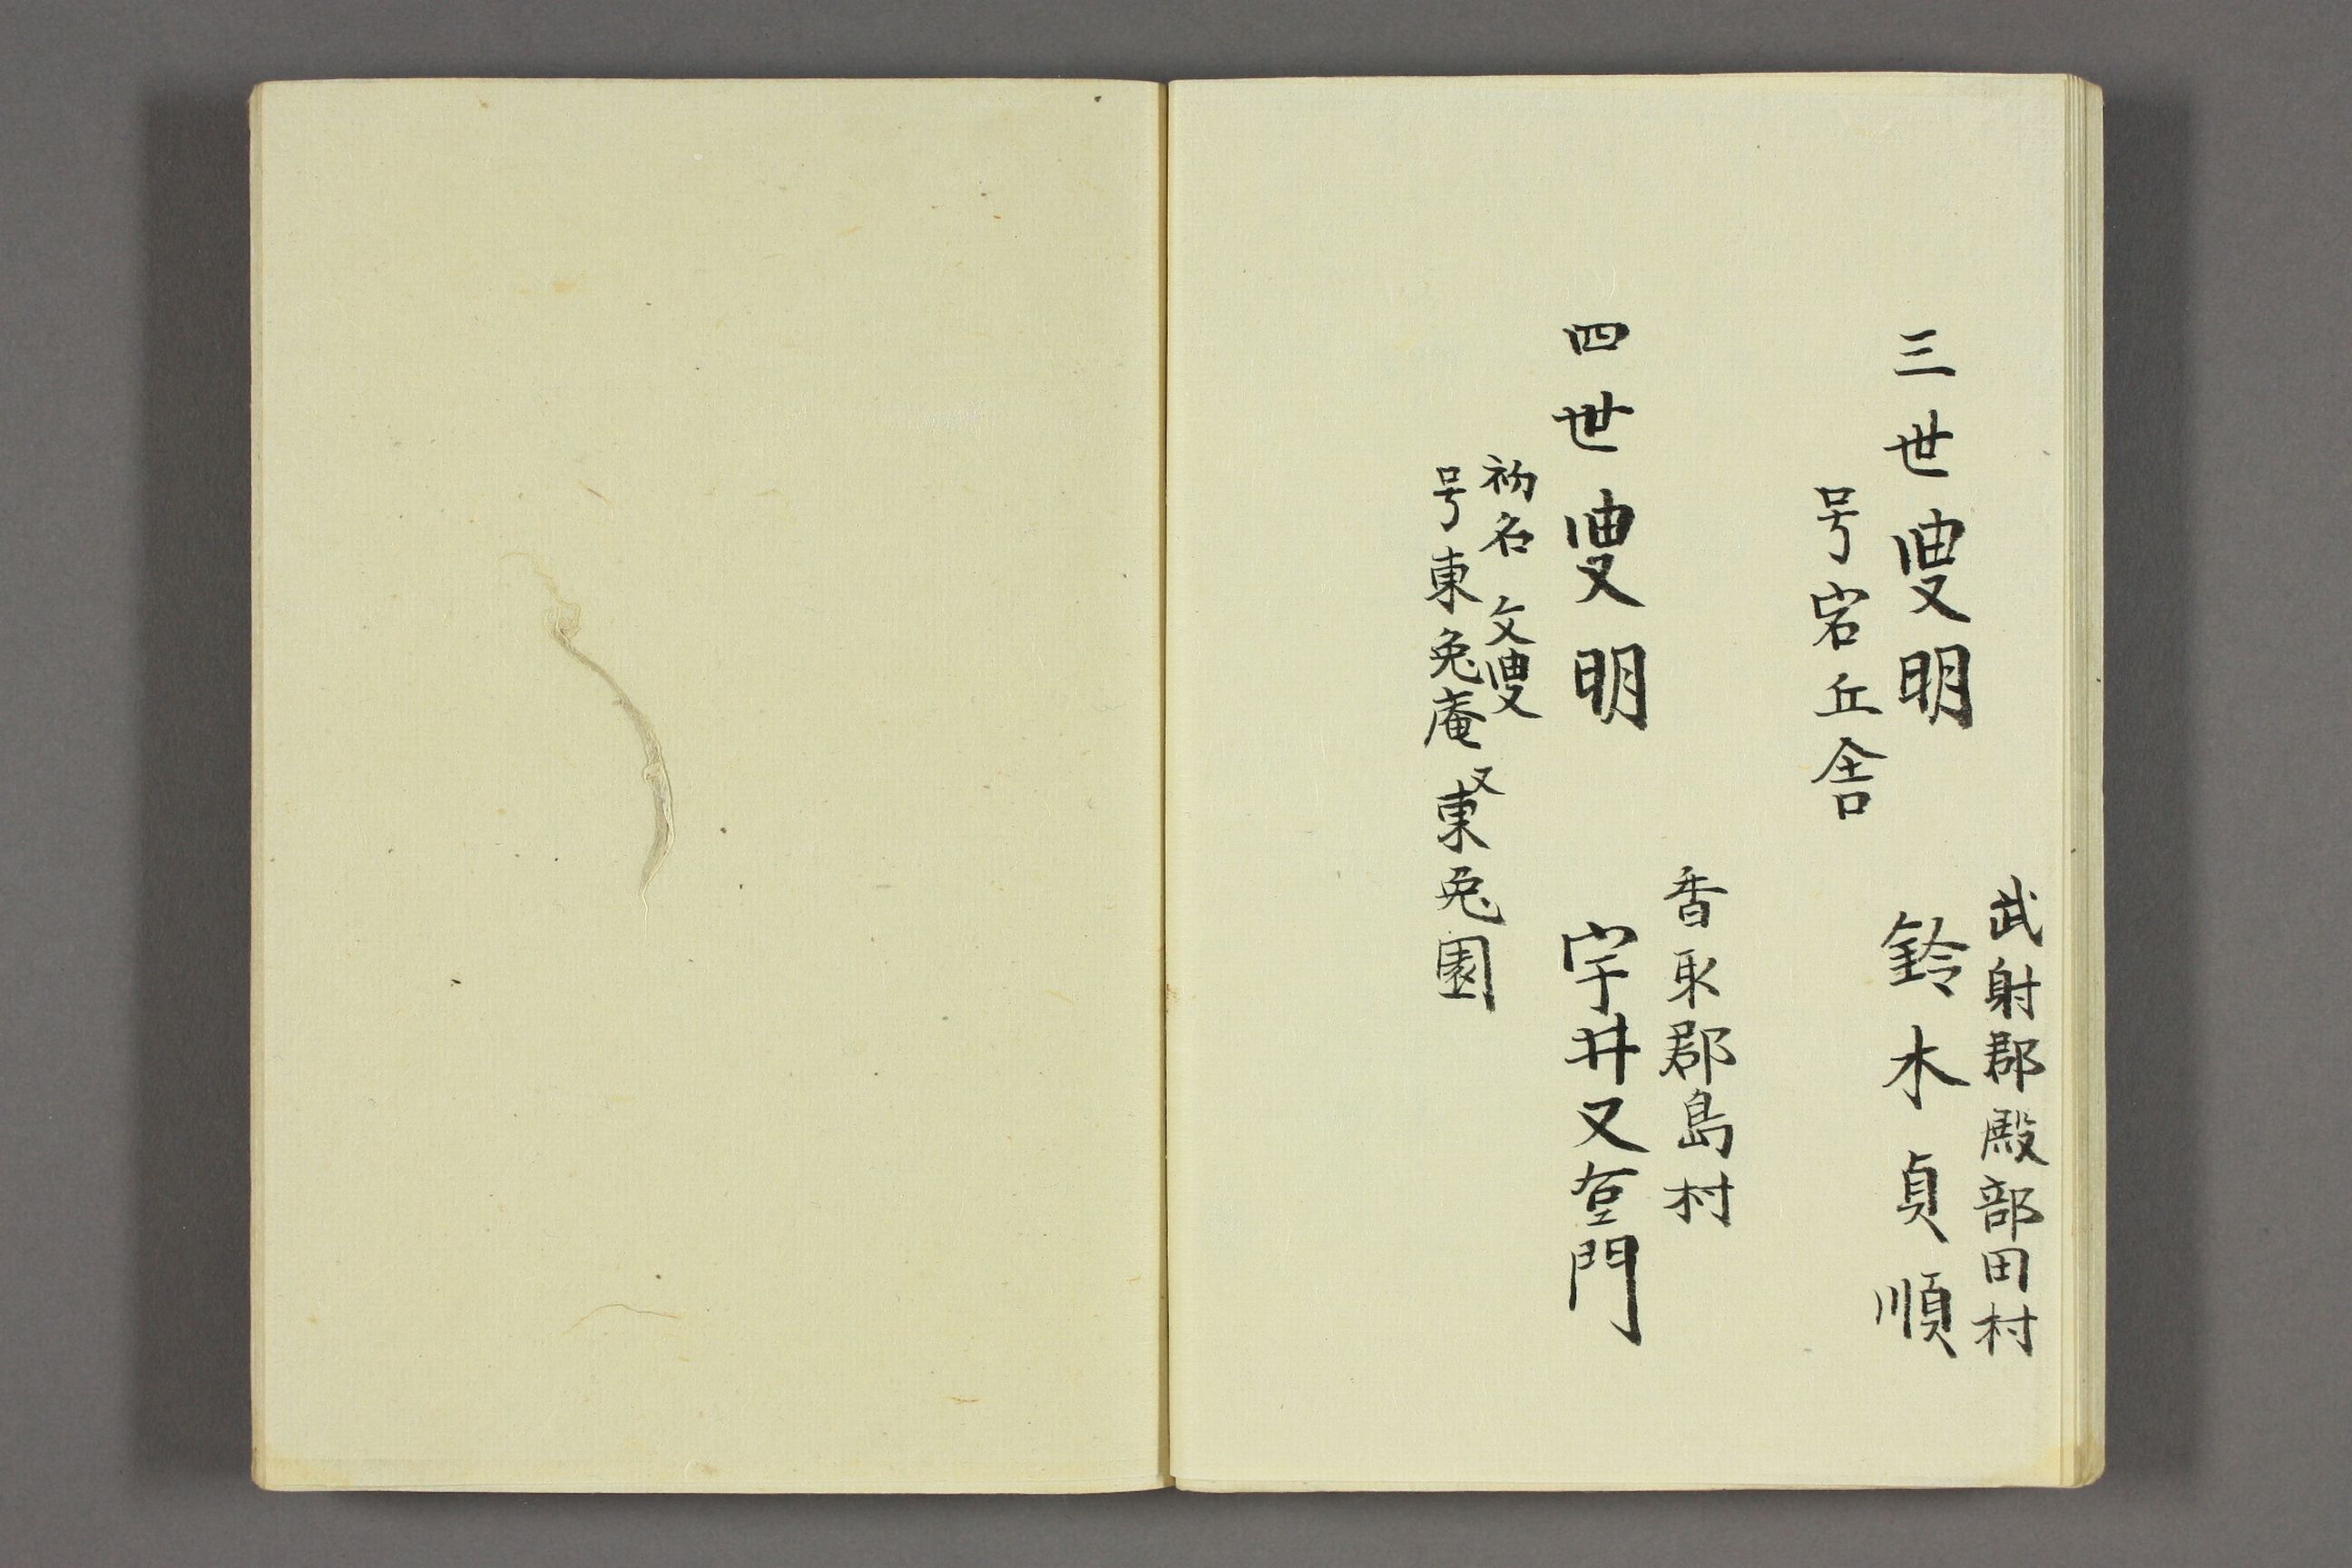 武射郡殿部田村
三世叟明　鈴木貞順
号宕丘舎
香取郡島村
四世叟明　宇井又右エ門
初名文叟
号東兎庵又東兎園